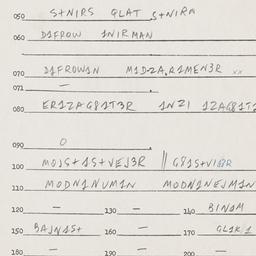 050 S+NIRS QLAT S+NIRA
060 D1FROW 1NIRMAN
070 D1FROW1N M1D-2A.R1MEN3R xx
071 —
080 ER1ZAG81T3R 1NZI 1ZAG81T3
090 O
100 MOJS+1S+VEJ3R || G81S+VI83R
110 MODN1NUM1N MODN1NEJM1N
120 — 130 — 140 BIN1M
150 BAJN1S+ 160 — 170 GL1K1
180 — 190 — 200 —